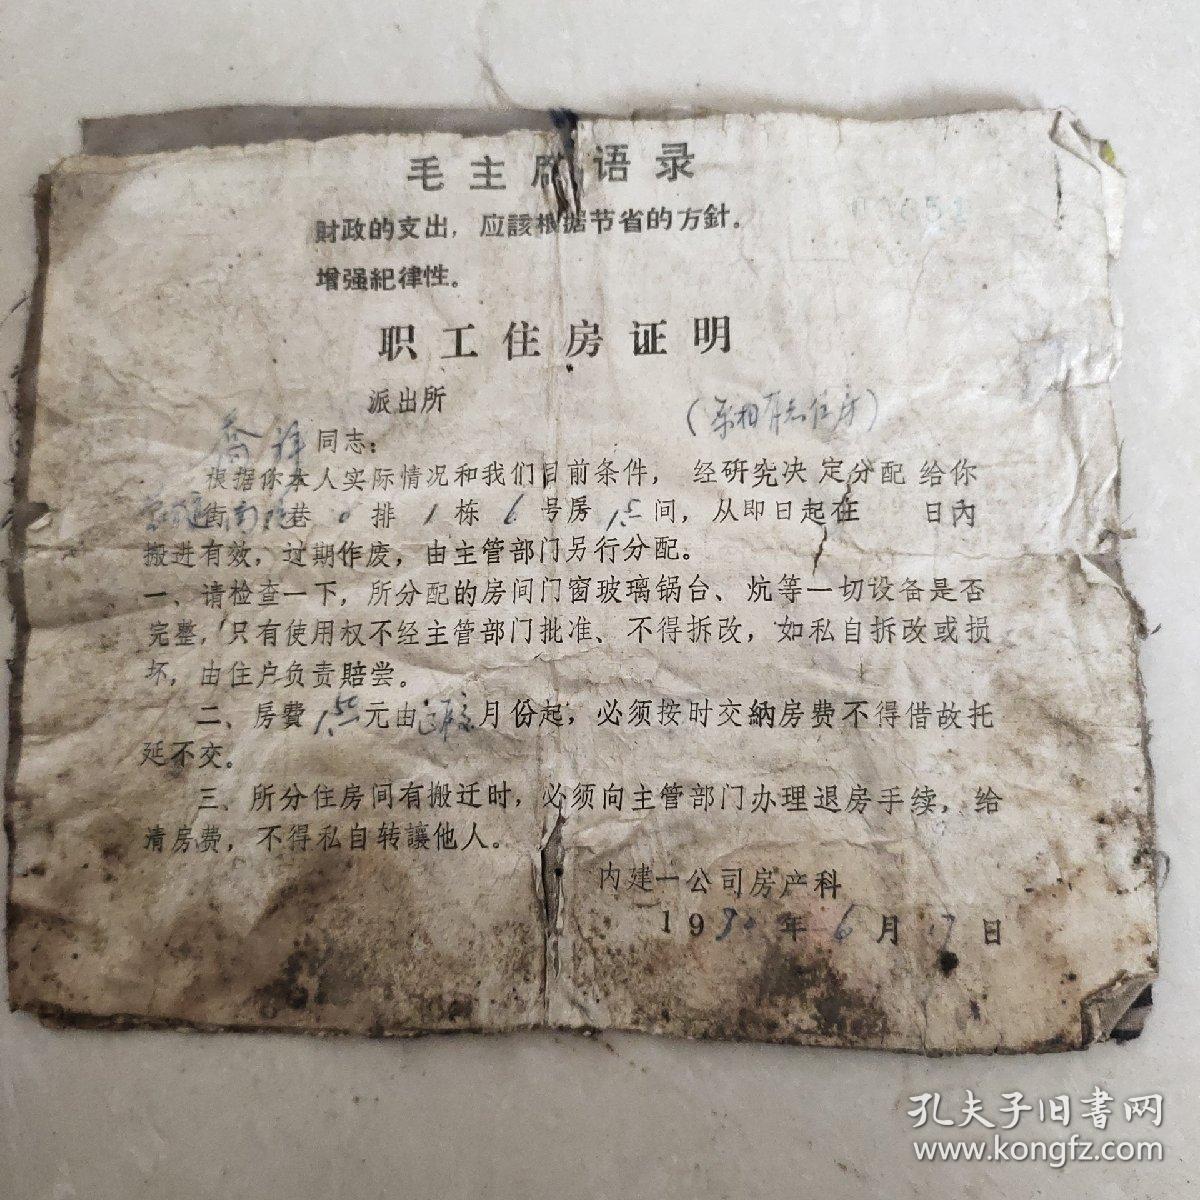 毛主席语录
00651
财政的支出，应該根据节省的方針。
增强紀律性。
职工住房证明
派出所
同志：
根据你本人实际情况和我们目前条件，经研究决定分配给你
街 巷 排 1 栋 6 号房 1.5 间，从即日起在 日內
搬进有效，过期作废，由主管部门另行分配。
一、请检查一下，所分配的房间门窗玻璃锅台、炕等一切设备是否
完整，只有使用权不经主管部门批准、不得拆改，如私自拆改或损
坏，由住户负责賠尝。
二、房費 1.50 元由 月份起，必须按时交納房费不得借故托
延不交。
三、所分住房间有搬迁时，必须向主管部门办理退房手续，给
清房费，不得私自转讓他人。
内建一公司房产科
1980 年 6 月 17 日
孔夫子旧书网
www.kongfz.com